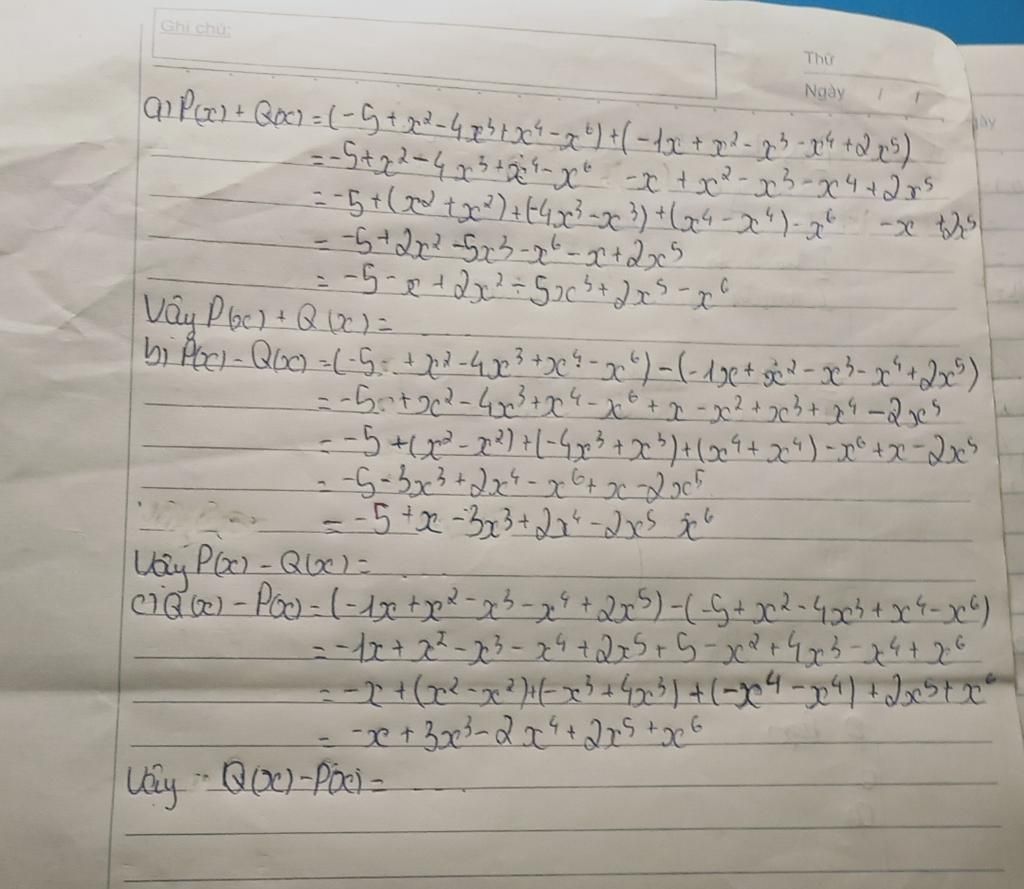 Ghi chú:
Thứ
Ngày / /
a) P(x) + Q(x) = (-5 + x² - 4x³ + x⁴ - x⁶) + (-1x + x² - x³ - x⁴ + 2x⁵)
= -5 + x² - 4x³ + x⁴ - x⁶ - x + x² - x³ - x⁴ + 2x⁵
= -5 + (x² + x²) + (-4x³ - x³) + (x⁴ - x⁴) - x⁶ - x + 2x⁵
= -5 + 2x² - 5x³ - x⁶ - x + 2x⁵
= -5 - x + 2x² - 5x³ + 2x⁵ - x⁶
Vậy P(x) + Q(x) = ....
b) P(x) - Q(x) = (-5 + x² - 4x³ + x⁴ - x⁶) - (-1x + x² - x³ - x⁴ + 2x⁵)
= -5 + x² - 4x³ + x⁴ - x⁶ + x - x² + x³ + x⁴ - 2x⁵
= -5 + (x² - x²) + (-4x³ + x³) + (x⁴ + x⁴) - x⁶ + x - 2x⁵
= -5 - 3x³ + 2x⁴ - x⁶ + x - 2x⁵
= -5 + x - 3x³ + 2x⁴ - 2x⁵ x⁶
Vậy P(x) - Q(x) = ...
c) Q(x) - P(x) = (-1x + x² - x³ - x⁴ + 2x⁵) - (-5 + x² - 4x³ + x⁴ - x⁶)
= -1x + x² - x³ - x⁴ + 2x⁵ + 5 - x² + 4x³ - x⁴ + x⁶
= -x + (x² - x²) + (-x³ + 4x³) + (-x⁴ - x⁴) + 2x⁵ + x⁶
= -x + 3x³ - 2x⁴ + 2x⁵ + x⁶
Vậy Q(x) - P(x) = ....